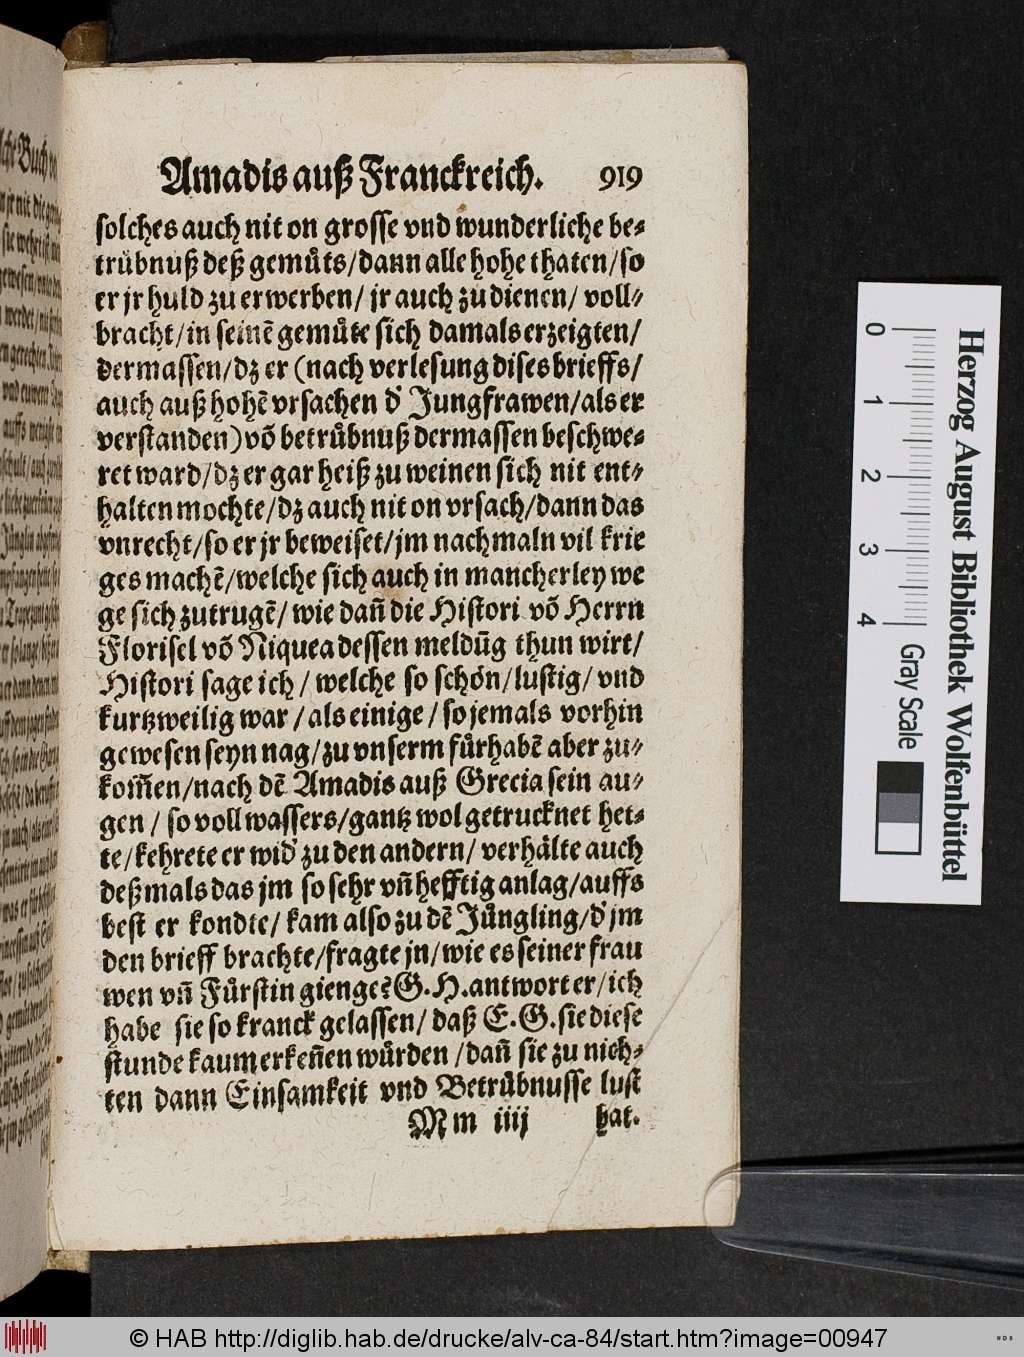 Amadis auß Franckreich. 919
solches auch nit on grosse vnd wunderliche be⸗
trübnuß deß gemüts/dann alle hohe thaten/so
er jr huld zu erwerben/ jr auch zu dienen/ voll⸗
bracht/in seinē gemüte sich damals erzeigten/
dermassen/dz er (nach verlesung dises brieffs/
auch auß hohē vrsachen d' Jungfrawen/als er
verstanden) võ betrübnuß dermassen beschwe⸗
ret ward/dz er gar heiß zu weinen sich nit ent⸗
halten mochte/dz auch nit on vrsach/dann das
vnrecht/so er jr beweiset/jm nachmaln vil krie
ges machē/welche sich auch in mancherley we
ge sich zutrugē/ wie dañ die Histori võ Herrn
Florisel võ Niquea dessen meldūg thun wirt/
Histori sage ich/ welche so schön/lustig/ vnd
kurtzweilig war/als einige/ so jemals vorhin
gewesen seyn nag/zu vnserm fürhabē aber zu⸗
kom̄en/nach dē Amadis auß Grecia sein au⸗
gen/ so voll wassers/gantz wol getrucknet het⸗
te/kehrete er wid' zu den andern/ verhälte auch
deßmals das jm so sehr vñ hefftig anlag/auffs
best er kondte/ kam also zu dē Jüngling/d' jm
den brieff brachte/fragte jn/wie es seiner frau
wen vñ Fürstin gienge? G. H. antwort er/ich
habe sie so kranck gelassen/ daß E. G. sie diese
stunde kaum erkeñen würden/dañ sie zu nich⸗
ten dann Einsamkeit vnd Betrübnusse lust
Mm iiij hat.
Herzog August Bibliothek Wolfenbüttel
0 1 2 3 4 Gray Scale
© HAB http://diglib.hab.de/drucke/alv-ca-84/start.htm?image=00947